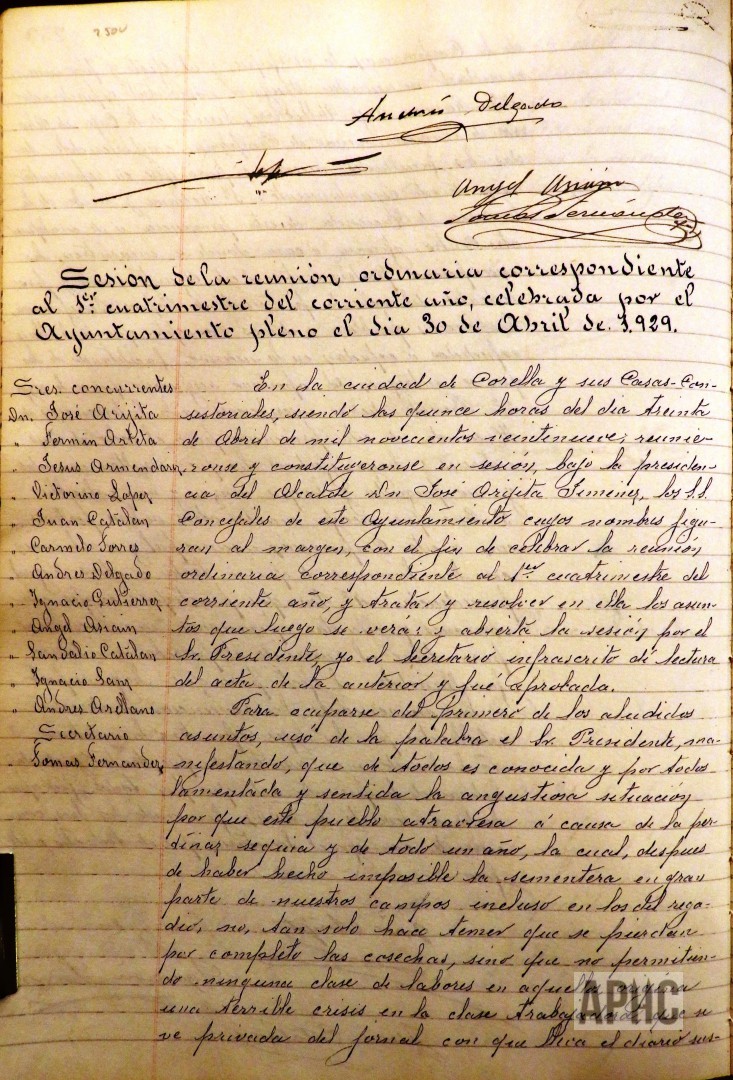 Andrés Delgado
Angel Arieun
Tomas Fernández
Sesión de la reunión ordinaria correspondiente
al 1er cuatrimestre del corriente año, celebrada por el
Ayuntamiento pleno el dia 30 de Abril de 1.929.
Sres. concurrentes
Dn. José Arijita
" Fermin Arteta
" Jesus Armendariz
" Victorino Lopez
" Juan Catalan
" Carmelo Torres
" Andres Delgado
" Ignacio Gutierrez
" Angel Arieun
" Sandalio Catalan
" Ignacio Sanz
" Andres Arellano
Secretario
Tomas Fernandez
En la cuidad de Corella y sus Casas-Con-
sistoriales, siendo las quince horas del dia treinta
de Abril de mil novecientos veintinueve; reunie-
ronse y constituyeronse en sesión, bajo la presiden-
cia del Alcalde Dn José Arijita Jimenez, los S.S.
Concejales de este Ayuntamiento cuyos nombres figu-
ran al margen, con el fin de celebrar la reunión
ordinaria correspondiente al 1er cuatrimestre del
corriente año, y tratar y resolver en ella los asun-
tos que luego se verá: y abierta la sesión por el
Sr. Presidente, yo el Secretario infrascrito di lectura
del acta de la anterior y fué aprobada.
Para ocuparse del primero de los aludidos
asuntos, uso de la palabra el Sr. Presidente, ma-
nifestando, que de todos es conocida y por todos
lamentada y sentida la angustiosa situación
por que este pueblo atraviesa á causa de la per-
tinaz sequia y de todo un año, la cual, despues
de haber hecho imposible la sementera en gran
parte de nuestros campos incluso en los del rega-
dio, no, tan solo hace temer que se pierdan
por completo las cosechas, sino que no permitien-
do ninguna clase de labores en aquella origina
una terrible crisis en la clase trabajadora que se
ve privada del jornal con que lleva el diario sus-
APHC